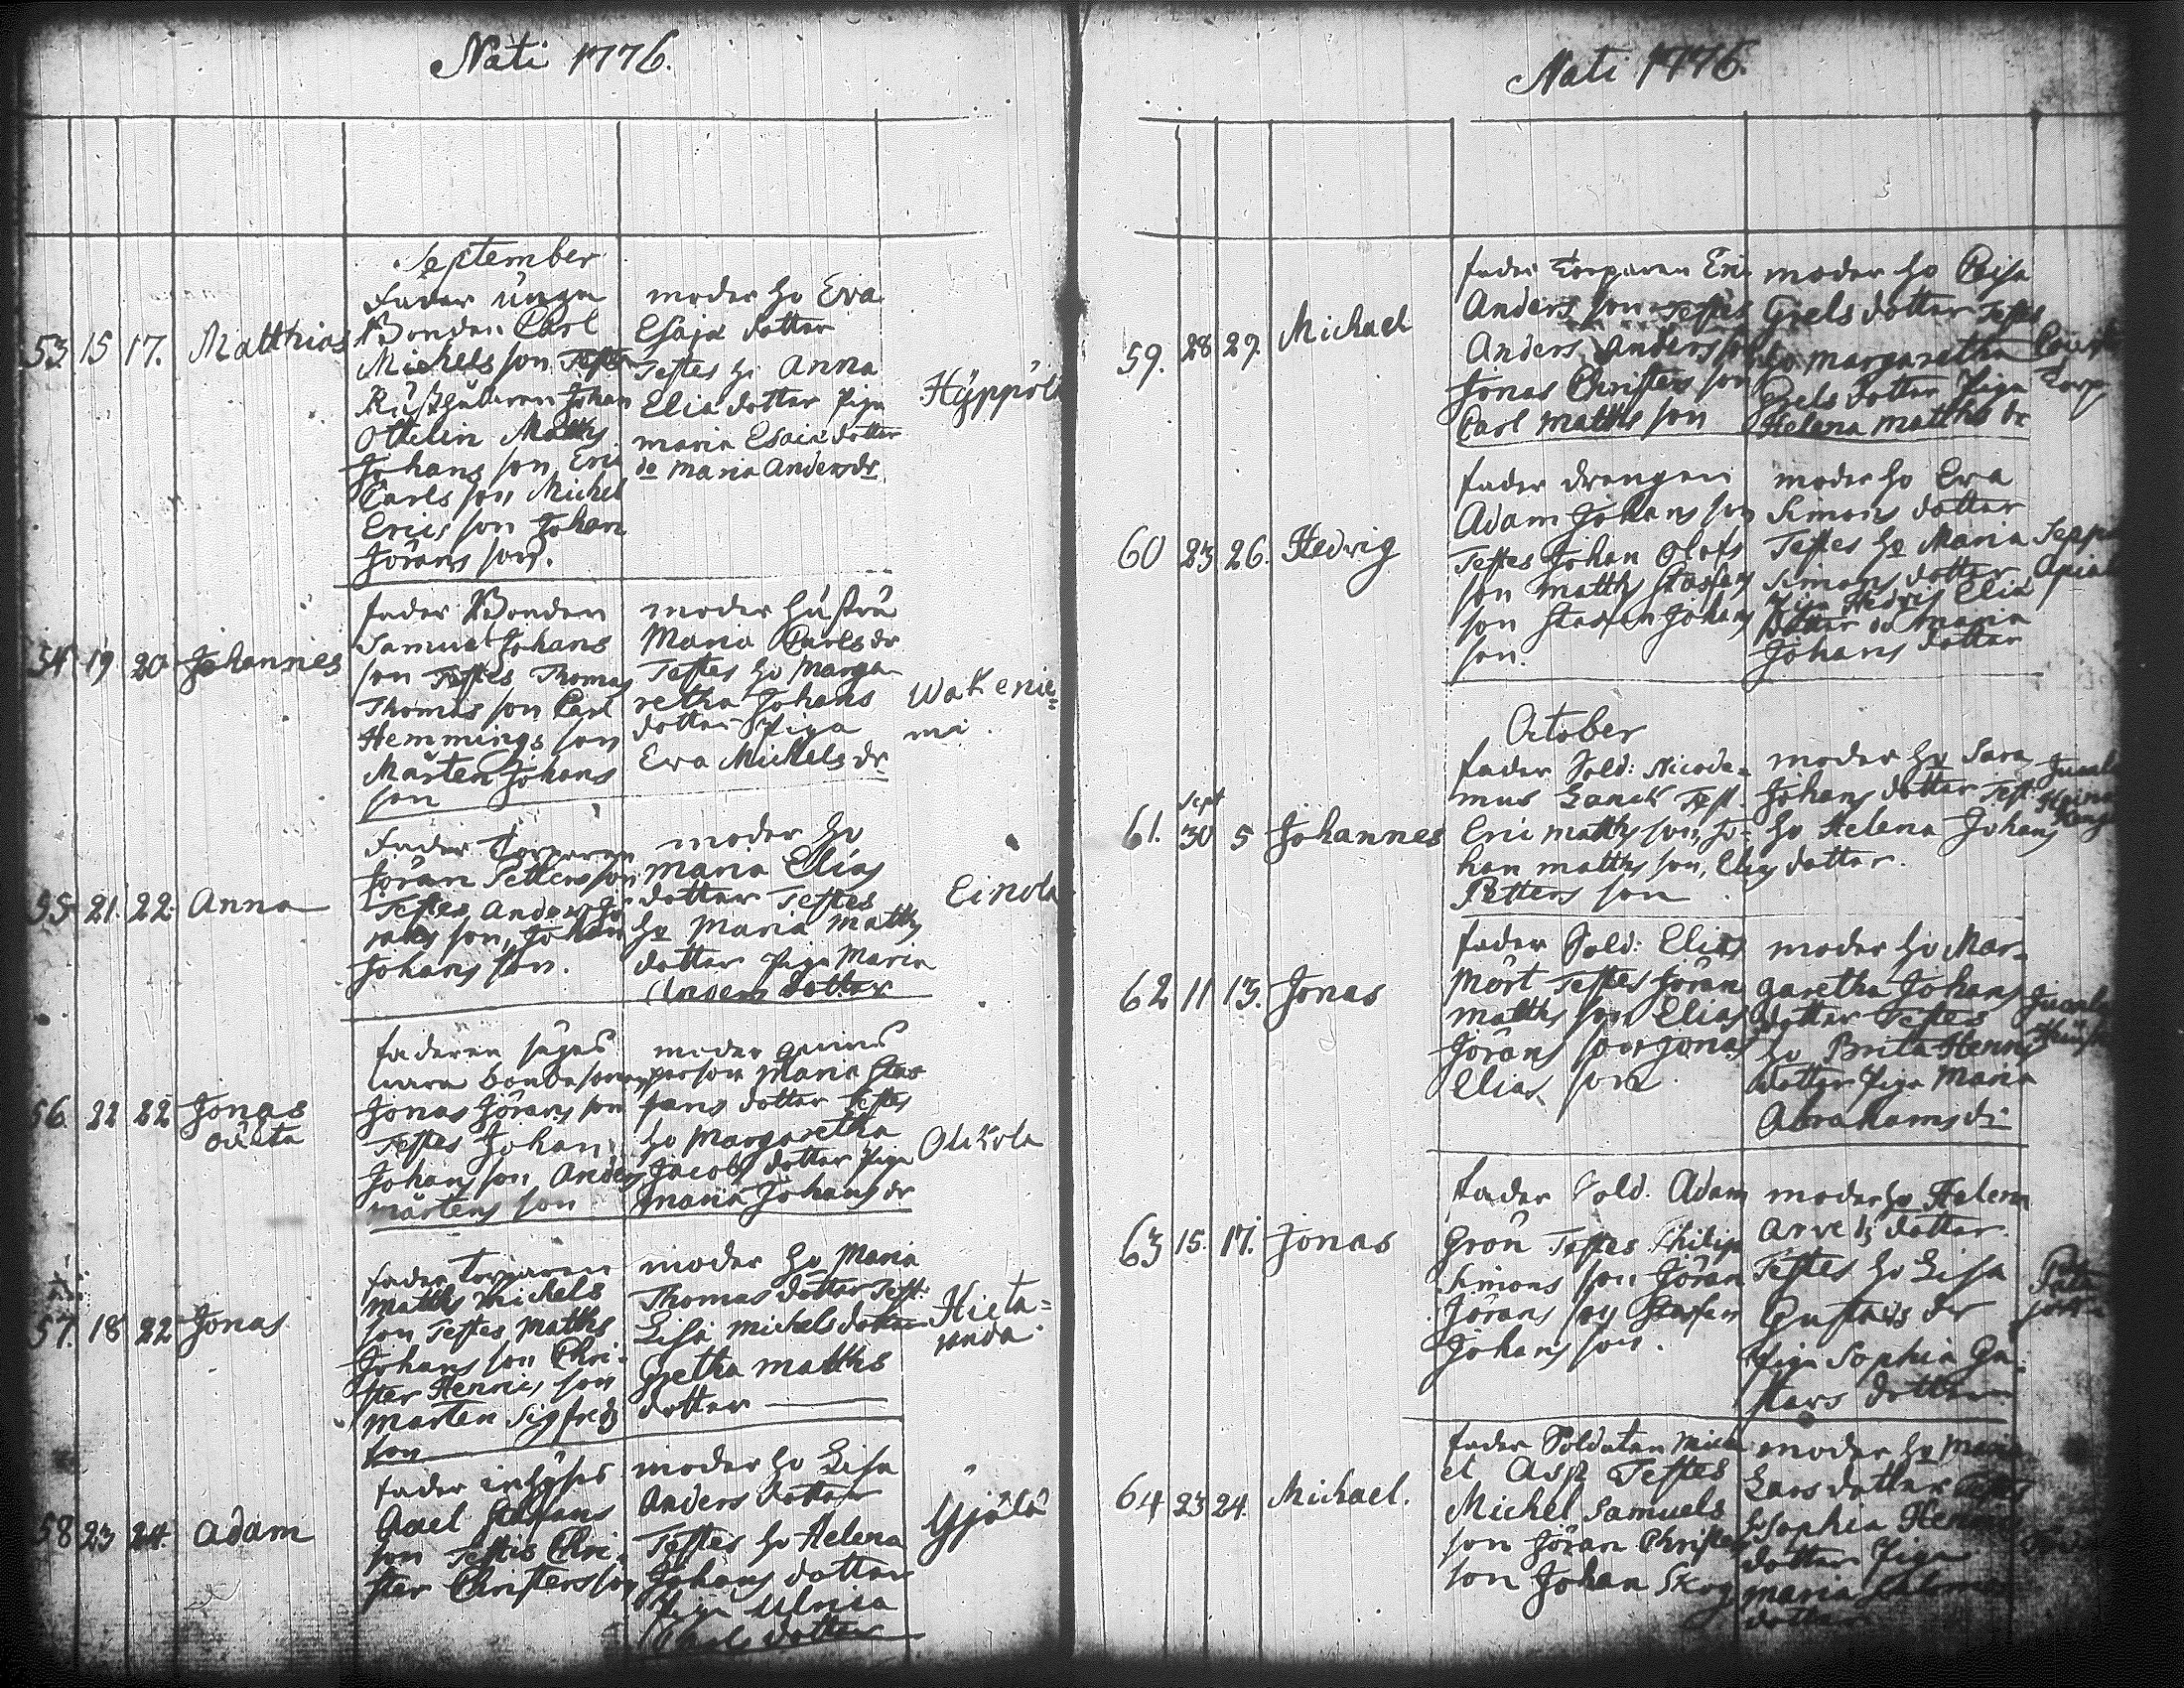 Nati 1776.
September
53 15 17. Matthias
Fader unga
Bonden Carl
Michels son Testes
Johan
Ottelin Matths
Johans son Eric
Carls son Michel
Erics son Johan
Jörans son.
moder ho Eva
Esaiæ dotter
Testes ho Anna
Eliæ dotter Piga
maria Esaiæ dotter
do Maria Anders dr
Hyppölä
54 19 20 Johannes
fader Bonden
Samuel Johans
son Testes Thomas
Thomas son Carl
Hemmings son
Mårten Johans
son
moder hustru
Maria Carls dr
Testes ho Marga
retha Johans
dotter Piga
Eva Michels dr
Wakenie=
mi.
55 21. 22. Anna
Fader Torparen
Jöran Petters son
Testes Anders Jö
rans son, Johan
Johans son.
moder ho
maria Elias
dotter Testes
ho Maria Matths
dotter Piga Maria
Anders dotter
Einola
56. 22 22 Jonas
oächta
faderen säges
wara bondesonen
Jonas Jörans son
Testes Johan
Johans son, Anders
mårtens son
moder quins
person Maria Stas
fans dotter Testes
ho Margaretha
Jacobs dotter Piga
maria Johans dr
Olickola
57. 18 22 Jonas
fader Torparen
Matths Michels
son Testes Matths
Johans son Chri-
ster Henrics son
Mårten Sigfreds
son
moder ho Maria
Thomas dotter Test.
Lisa Michels dotter
Gretha Matths
dotter
Hieta=
58 23 24. Adam
fader inhyses
Axel Stafans
son Testis Chri-
ster Christers son
moder ho Lisa
Anders dotter
Testes ho Helena
Johans dotter
Piga Ulrica
Carls dotter
Yjälä
Nati 1776.
59. 28 29. Michael
fader Torparen Eric
Anders son Testes
Anders Anders son
Jonas Christers son
Carl Matths son
moder ho Caisa
Grels dotter Testes
ho Margaretha
Grels dotter Piga
Helena Matths dr
Torp
60 23 26. Hedvig
fader drengen
Adam Johans son
Testes Johan Olofs
son Matths Stafans
son Stafan Johans
son.
moder ho Eva
Simons dotter
Testes ho Maria
Simons dotter
Piga Hedvig Eliæ
dotter do Maria
Johans dotter
October
61. Sept 30 5 Johannes
fader Sold: Nicode-
mus Test.
Eric Matths son, Jo-
han Matths son, Elias
Petters son
moder ho Sara
Johans dotter Test:
ho Helena Johans
dotter.
62 11 13. Jonas
fader Sold: Elias
Mört Testes Jöran
Matths son Elias
Jörans son Jonas
Elias son
moder ho Mar-
garetha Johans
dotter Testes
ho Brita Henrics
dotter Piga Maria
Abrahams dr
63 15. 17. Jonas
fader Sold. Adam
Grön Testes Philip
Simons son Jöran
Jörans son Stafan
Johans son.
moder ho Helena
Arveds dotter.
Testes ho Lisa
Gustavs dr
Piga Sophia Gu-
stavs dotter
64 23 24. Michael.
fader Soldaten Mica
el Asp Testes
Michel Samuels
son Jöran Christers
son Johan Skog
moder ho Maria
Lars dotter Testes
ho Sophia
dotter Piga
Maria
dotter